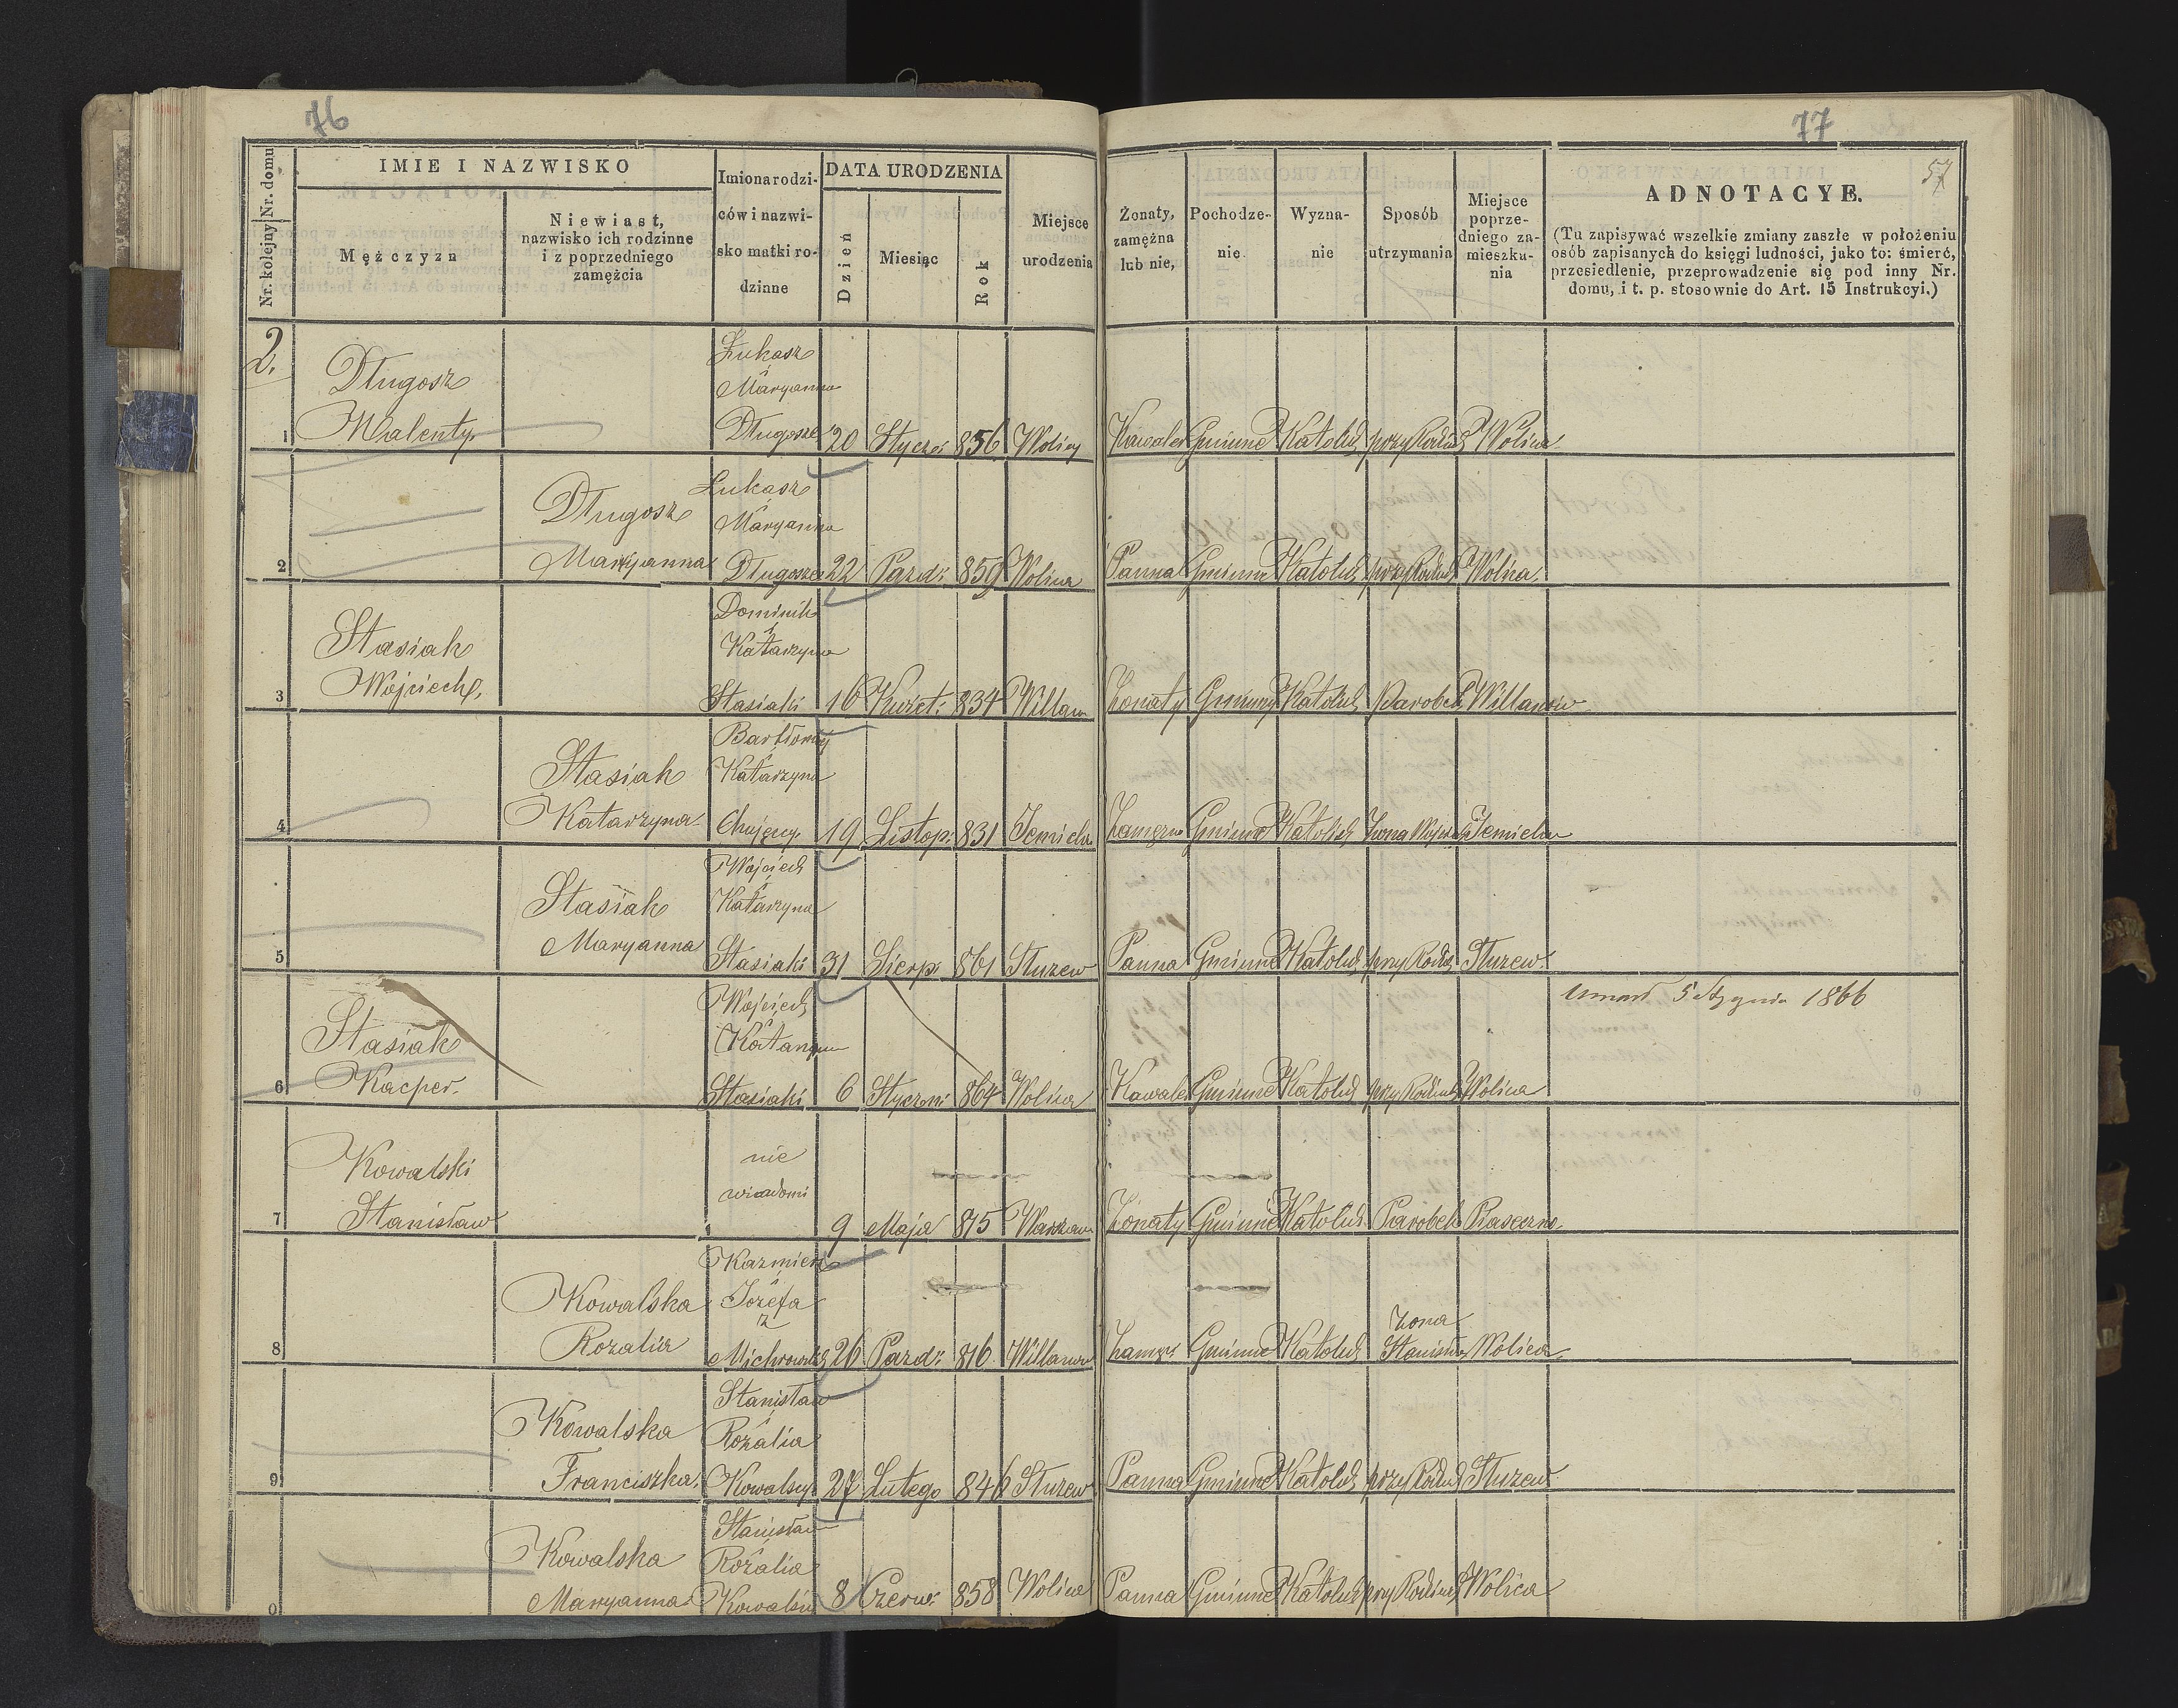 76
77
57
Nr. kolejny Nr. domu
IMIE I NAZWISKO
Mężczyzn
Niewiast,
nazwisko ich rodzinne
i z poprzedniego
zamęźcia
Imiona rodzi-
ców i nazwi-
sko matki ro-
dzinne
DATA URODZENIA
Dzień
Miesiąc
Rok
Miejsce
urodzenia
Żonaty,
zamężna
lub nie,
Pochodze-
nie
Wyzna-
nie
Sposób
utrzymania
Miejsce
poprze-
dniego za-
mieszka-
nia
ADNOTACYE.
(Tu zapisywać wszelkie zmiany zaszłe w położeniu
osób zapisanych do księgi ludności, jako to: śmierć,
przesiedlenie, przeprowadzenie się pod inny Nr.
domu, i t. p. stosownie do Art. 15 Instrukcyi.)
2.
Długosz
Łukasz
i
Maryanna
1 Walenty Długosze 20 Stycz: 856 Wolicy Kawaler Gminne Katolik przy Rodzic Wolica
Długosz
Łukasz
i
Maryanna
2 Maryanna Długosze 22 Pazd: 859 Wolica Panna Gminne Katolik przy Rodzic Wolica
Stasiak
Dominik
i
Katarzyna
3 Wojciech Stasiaki 16 Kwiet: 834 Willan Żonaty Gminny Katolik Parobek Willanów
Stasiak
Bartłomiej
i
Katarzyna
4 Katarzyna 19 Listop: 831 Zamęzna Gminne Katolik Żona
Stasiak
Wojciech
i
Katarzyna
5 Maryanna Stasiaki 31 Sierp: 861 Słuzew Panna Gminne Katolik przy Rodz Słuzew
Stasiak
Wojciech
i
Katarzyna
Umarł 5 Stycznia 1866
6 Kacper Stasiaki 6 Styczni 864 Wolica Kawaler Gminne Katolik przy Rodzic Wolica
Kowalski
nie
wiadomi
7 Stanisław 9 Maja 815 Warszawa Żonaty Gminne Katolik Parobek Piaseczno
Kowalska
Kazmierz
i
Józefa
z
Żona
8 Rozalia 26 Pazd: 816 Willanow Zamęz: Gminne Katolik Stanisła Wolica
Kowalska
Stanisław
i
Rozalia
9 Franciszka Kowalscy 27 Lutego 846 Słuzew Panna Gminne Katolik przy Rodzic Słuzew
Kowalska
Stanisław
i
Rozalia
0 Maryanna Kowalscy 8 Czerw: 858 Wolica Panna Gminne Katolik przy Rodzic Wolica